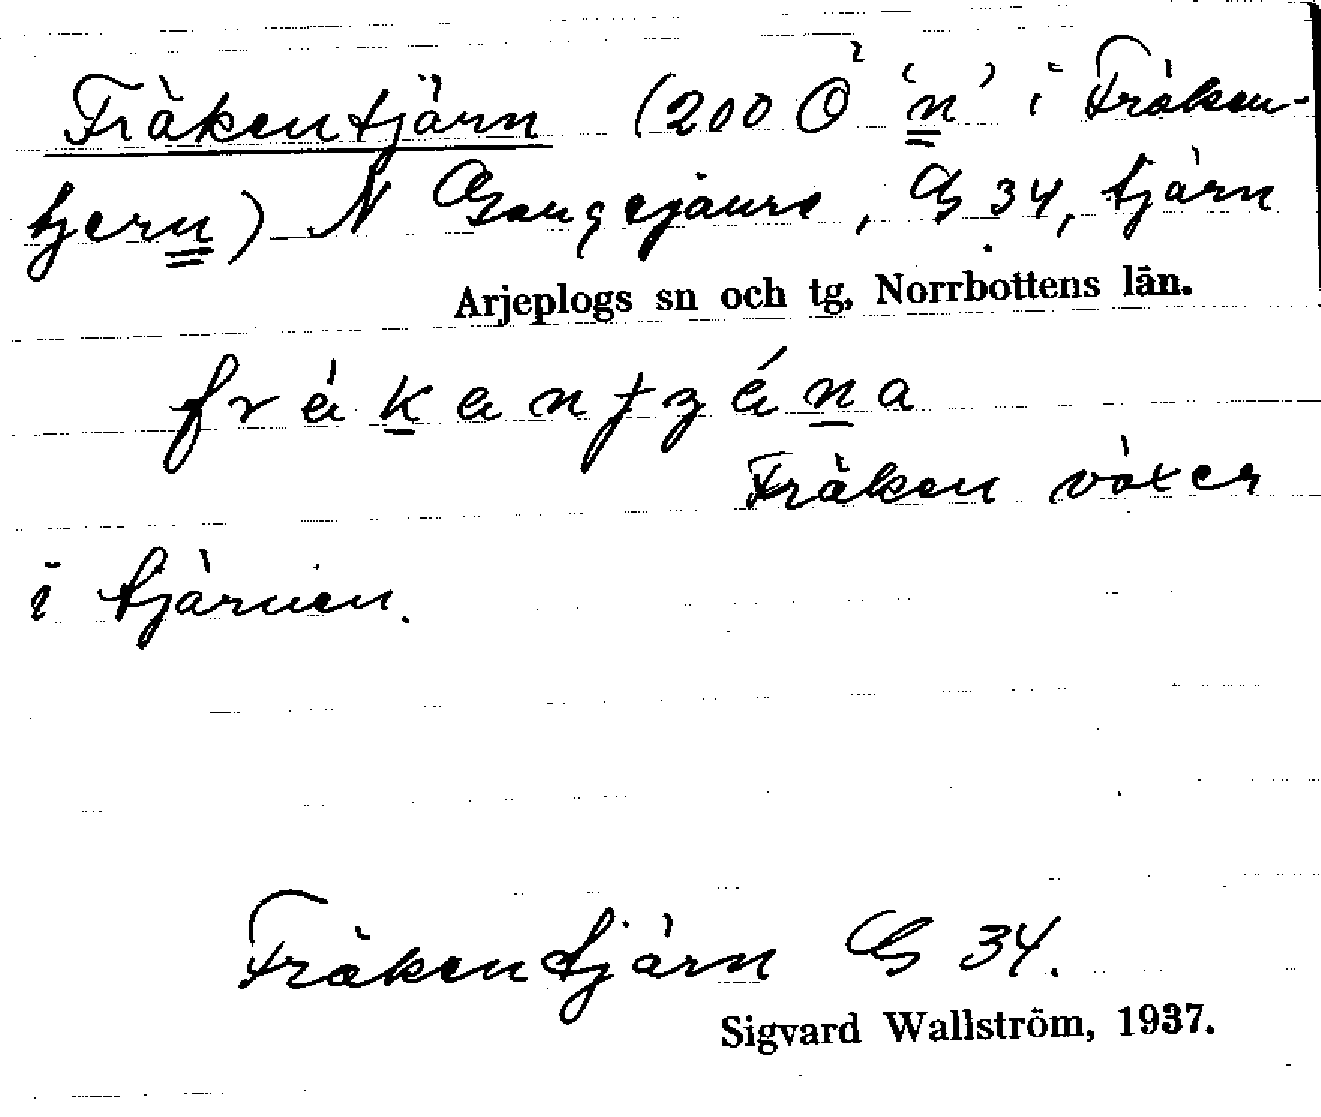 Fräkentjärn (200 Ö 'n' i Fräken-
tjern) N Gaugejaure, G 34, tjärn
Arjeplogs sn och tg, Norrbottens län.
Fräken växer
i tjärnen.
Fräkentjärn G 34.
Sigvard Wallström, 1937.